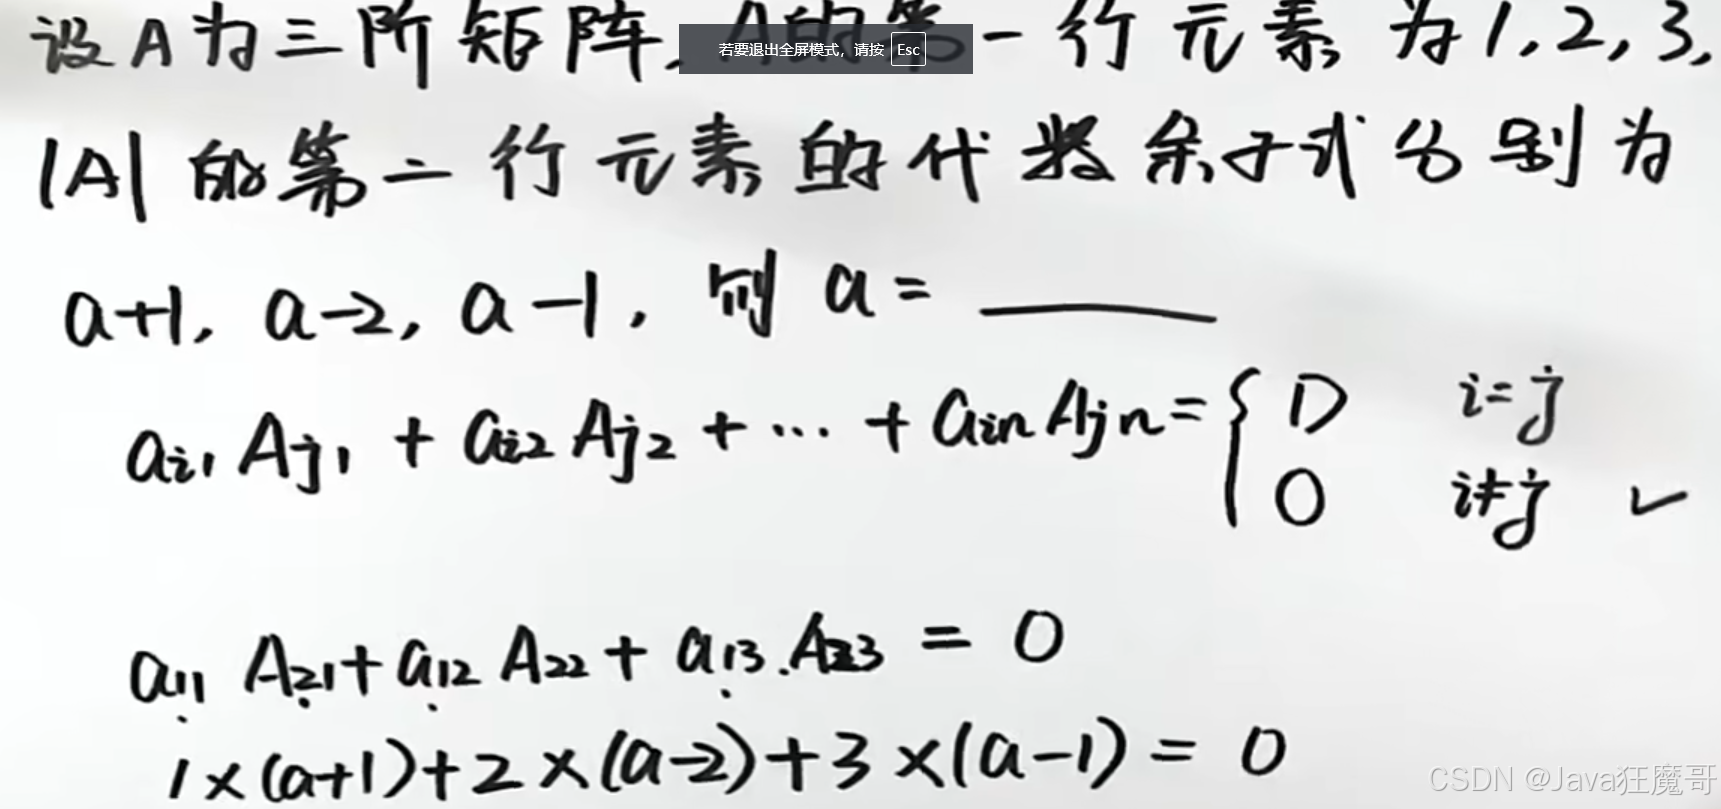 设A为三阶矩阵, A的第一行元素为1,2,3,
若要退出全屏模式，请按 Esc
|A|的第二行元素的代数余子式分别为
a+1, a-2, a-1, 则 a = ______
a_{i1} A_{j1} + a_{i2} A_{j2} + ... + a_{in} A_{jn} = { D i=j
0 i≠j ✓
a_{11} A_{21} + a_{12} A_{22} + a_{13} . A_{23} = 0
1×(a+1)+2×(a-2)+3×(a-1) = 0
CSDN @Java狂魔哥